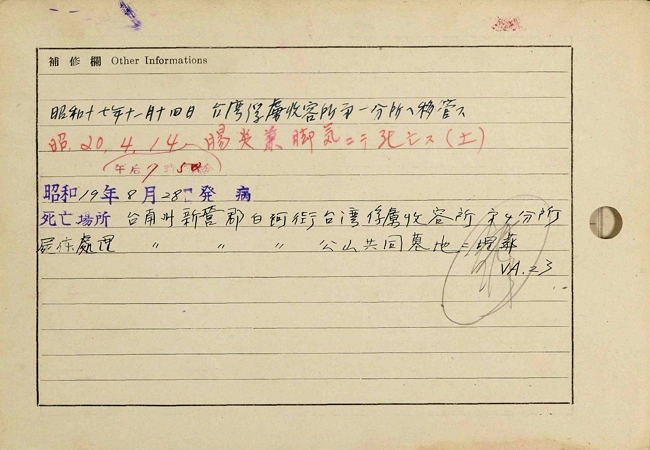 補修欄 Other Informations
昭和十七年十一月十四日 台湾俘虜收容所第一分所へ移管ス
昭.20.4.14 腸炎兼脚気ニテ死亡ス(土)
午后 時5 分
昭和19年8月28日発病
死亡場所 台南州新營郡白河街台湾俘虜收容所第4分所
屍体處理 〃 〃 〃 公山共同墓地ニ埋葬
VA.23